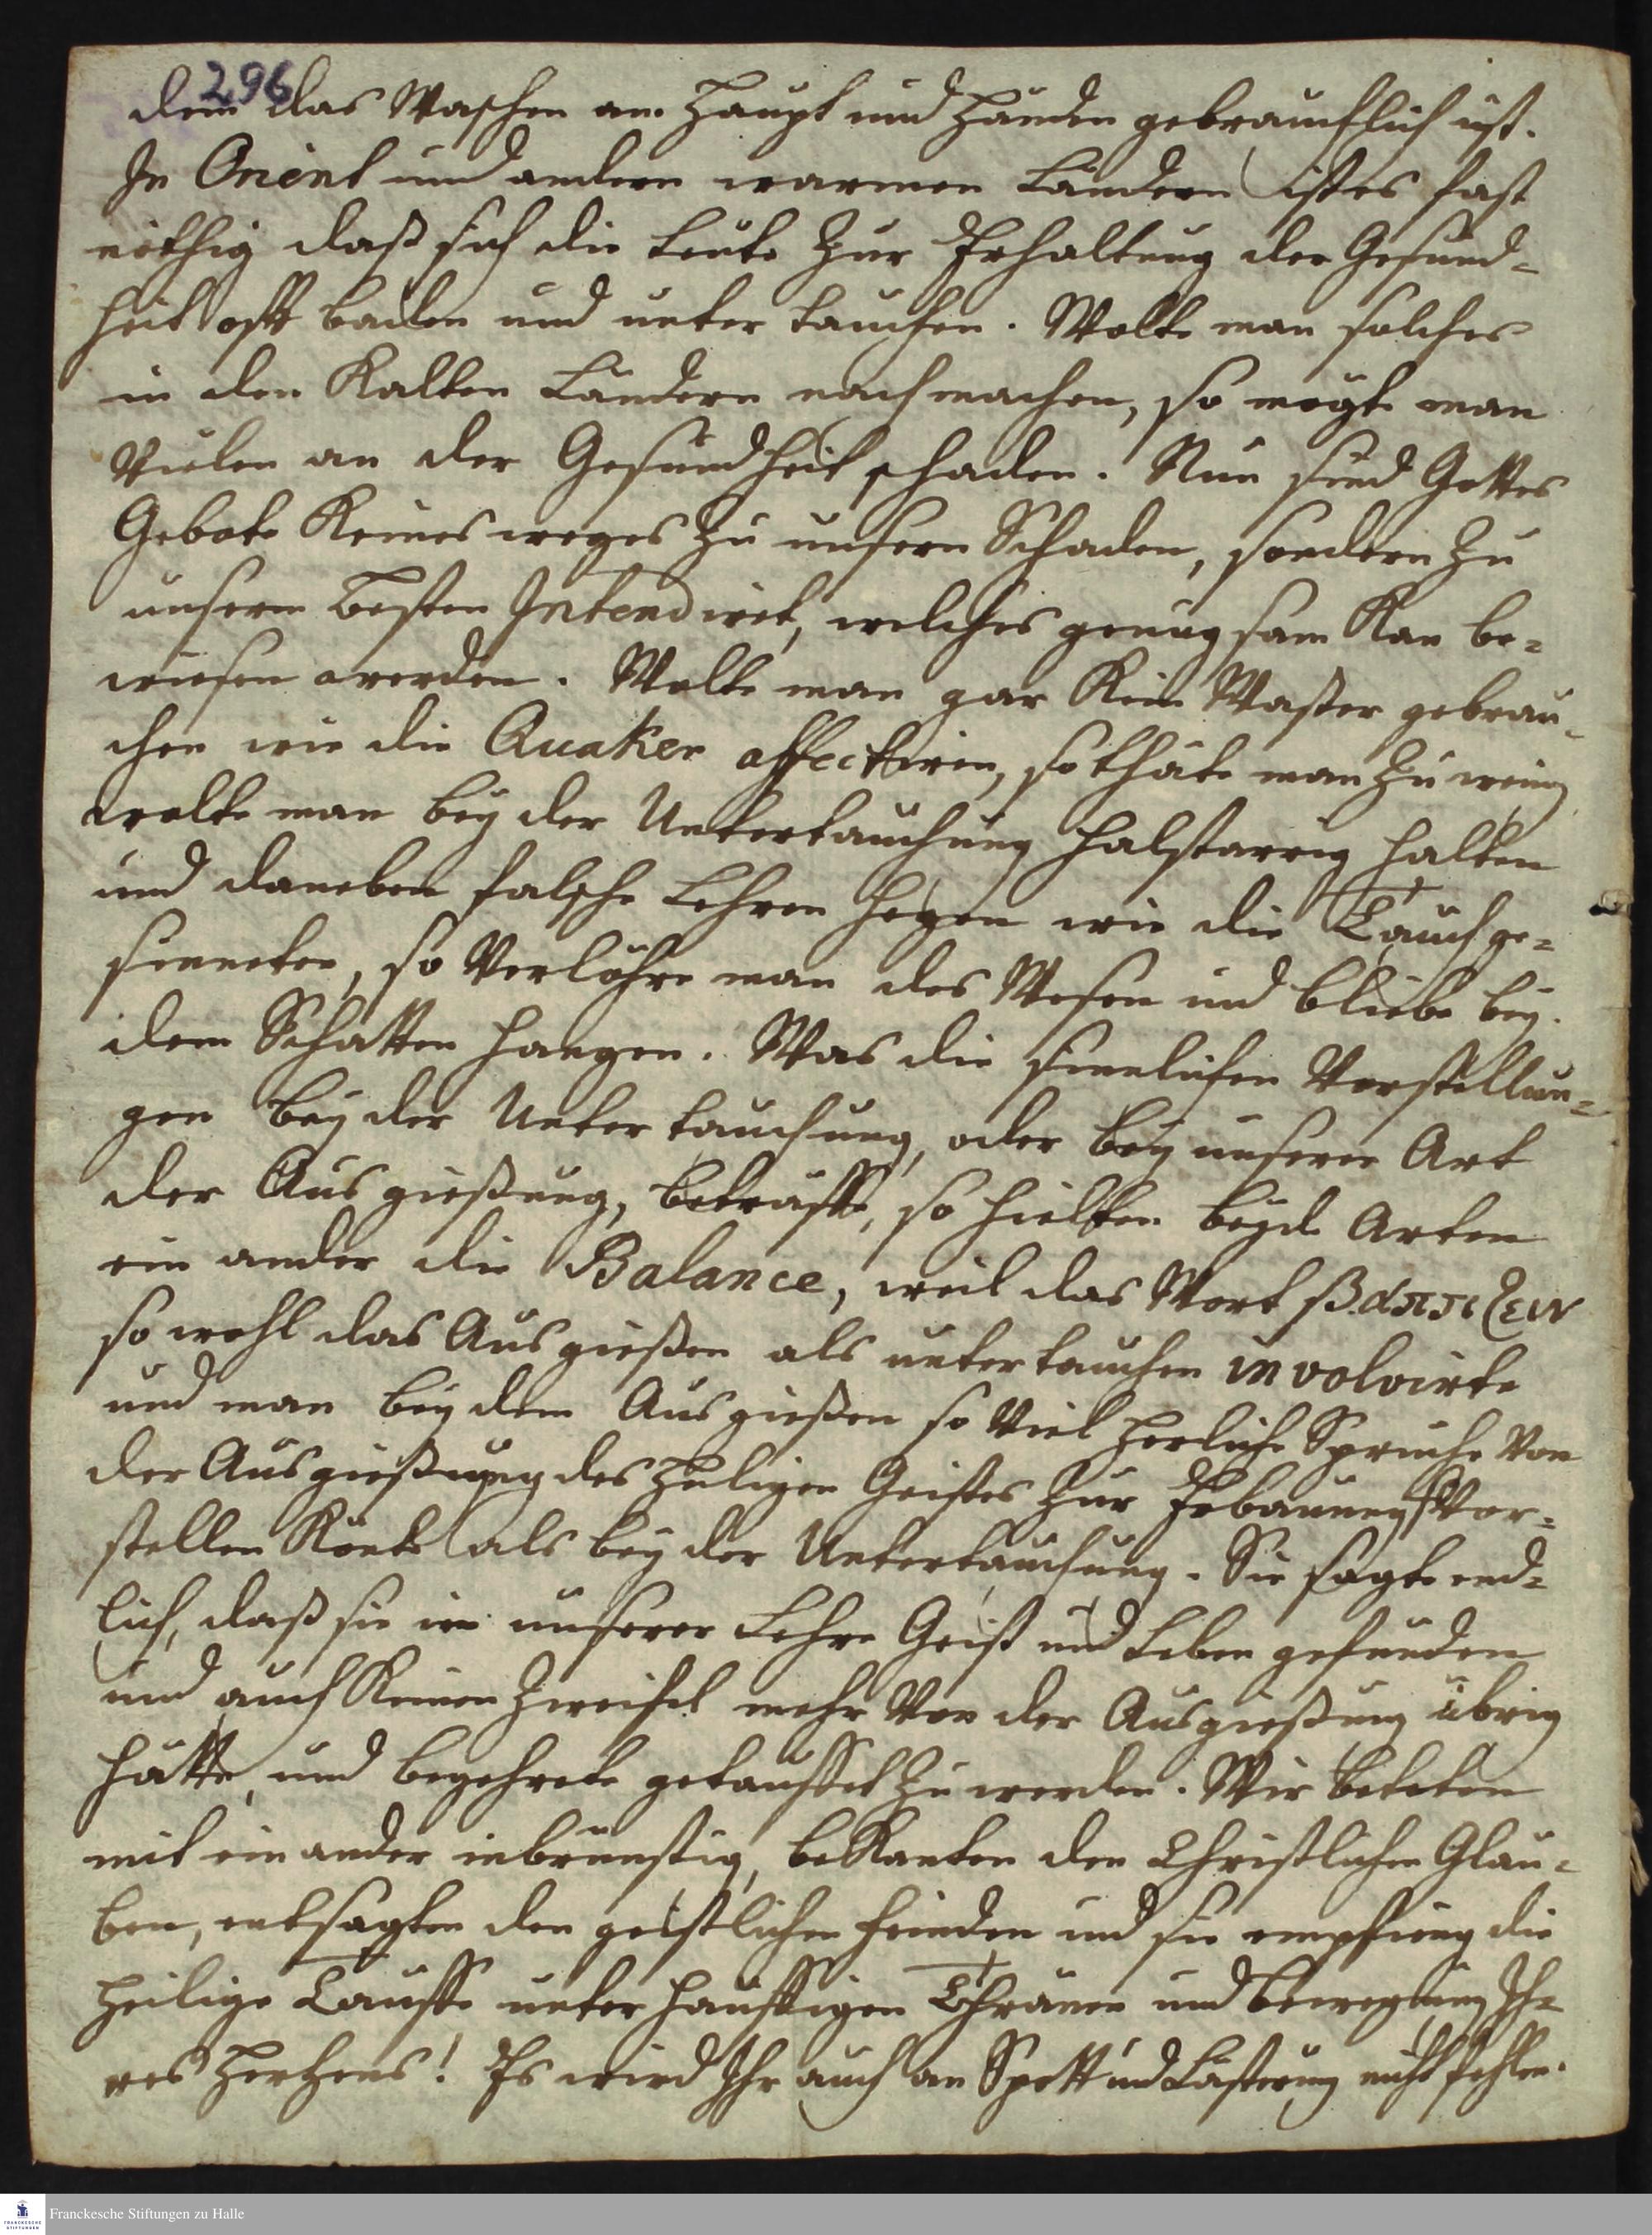 296
dem das Waschen am Haupt und Händen gebräuchlich ist.
In Orient und andern warmen Ländern ist es fast
nöthig daß sich die Leute zur Erhaltung der Gesund=
heit offt baden und unter tauchen. Wolte man solches
in den Kalten Ländern nachmachen, so mögte man
Vielen an der Gesundheit schaden. Nun sind Gottes
Gebote Keines weges zu unserm Schaden, sondern zu
unserm besten Intendiret, welches genugsam Kan be=
wiesen werden. Wolte man gar Kein Waßer gebrau=
chen wie die Quaker affectiren, so thäte man zu wenig
wolte man bey der Untertauchung halstarrig halten
und daneben falsche Lehren hegen wie die Tauchge=
sinneten, so Verlöhre man das Wesen und bliebe bey
dem Schatten hangen. Was die sinnlichen Vorstellun=
gen bey der Unter tauchung, oder bey unserer Art
der Ausgießung, beträffe, so hielten beyde Arten
ein ander die Balance, weil das Wort βάπτιζειν
so wohl das Ausgießen als untertauchen involvirte
und man bey dem Ausgießen so Viel herliche Sprüche Von
der Ausgießung des Heiligen Geistes zur Erbauung Vor=
stellen Könte als bey der Untertauchung. Sie sagte end=
lich, daß sie in unserer Lehre Geist und Leben gefunden
und auch Keinen Zweifel mehr Von der Ausgießung übrig
hätte, und begehrete getauffet zu werden. Wir beteten
mit ein ander inbrünstig, beKanten den Christlichen Glau=
ben, entsagten den geistlichen Feinden und sie empfieng die
Heilige Tauffe unter häuffigen Thränen und bewegung Ih=
res Hertzens! Es wird Ihr auch an Spott und Lästerung nicht fehlen.
Franckesche Stiftungen zu Halle
FRANCKESCHE
STIFTUNGEN